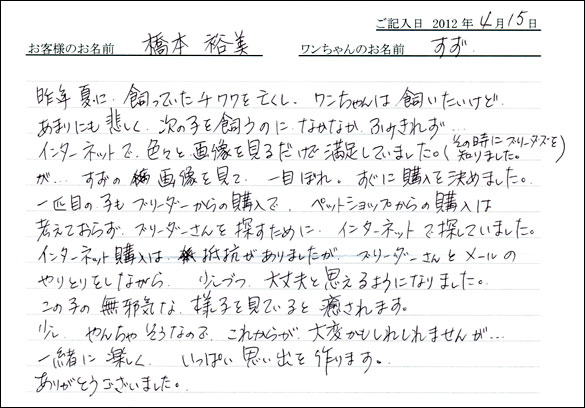 ご記入日 2012年4月15日
お客様のお名前 橋本 裕美 ワンちゃんのお名前 すず
昨年夏に、飼っていたチワワを亡くし、ワンちゃんは飼いたいけど、
あまりにも悲しく、次の子を飼うのに、なかなか、ふみきれず…
インターネットで、色々と画像を見るだけで満足していました。(その時にブリーダーズを知りました。)
が… すずの画像を見て、一目ぼれ。すぐに購入を決めました。
一匹目の子もブリーダーからの購入で、ペットショップからの購入は
考えておらず、ブリーダーさんを探すために、インターネットで探していました。
インターネット購入は 抵抗がありましたが、ブリーダーさんとメールの
やりとりをしながら、少しづつ、大丈夫と思えるようになりました。
この子の無邪気な、様子を見ていると癒されます。
少し、やんちゃそうなので、これからが、大変かもしれしれませんが…
一緒に楽しく、いっぱい思い出を作ります。
ありがとうございました。